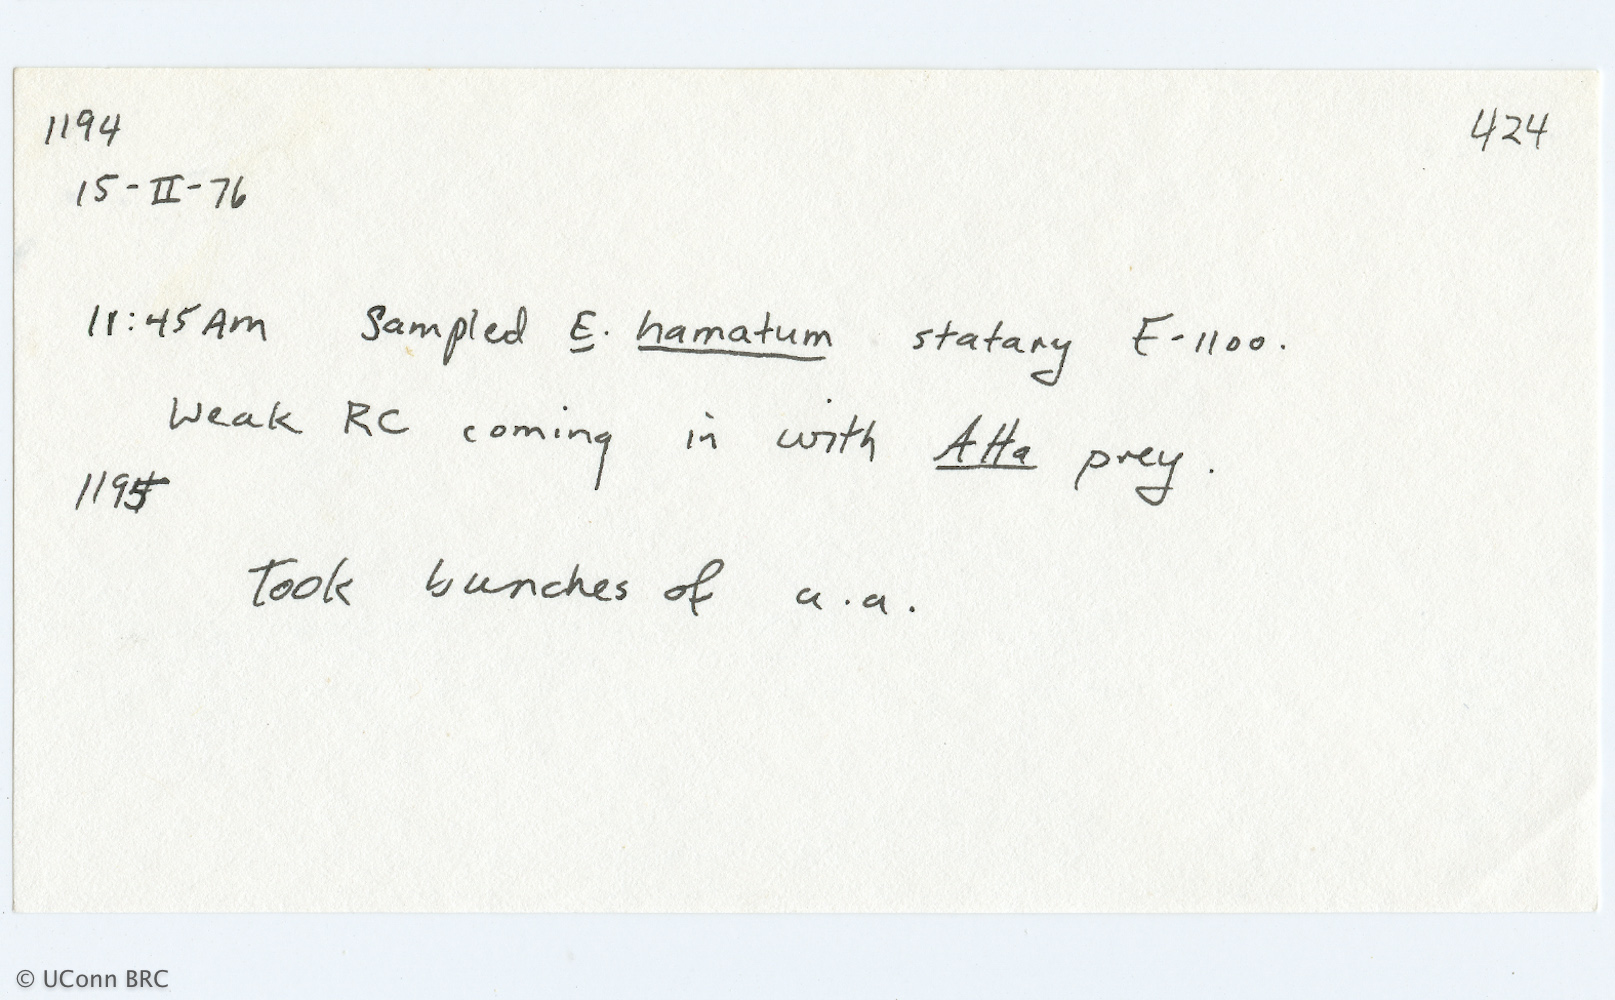 1194 424
15-II-76
11:45 Am Sampled E. hamatum statary E-1100.
Weak RC coming in with Atta prey.
1195
Took bunches of a.a.
© UConn BRC